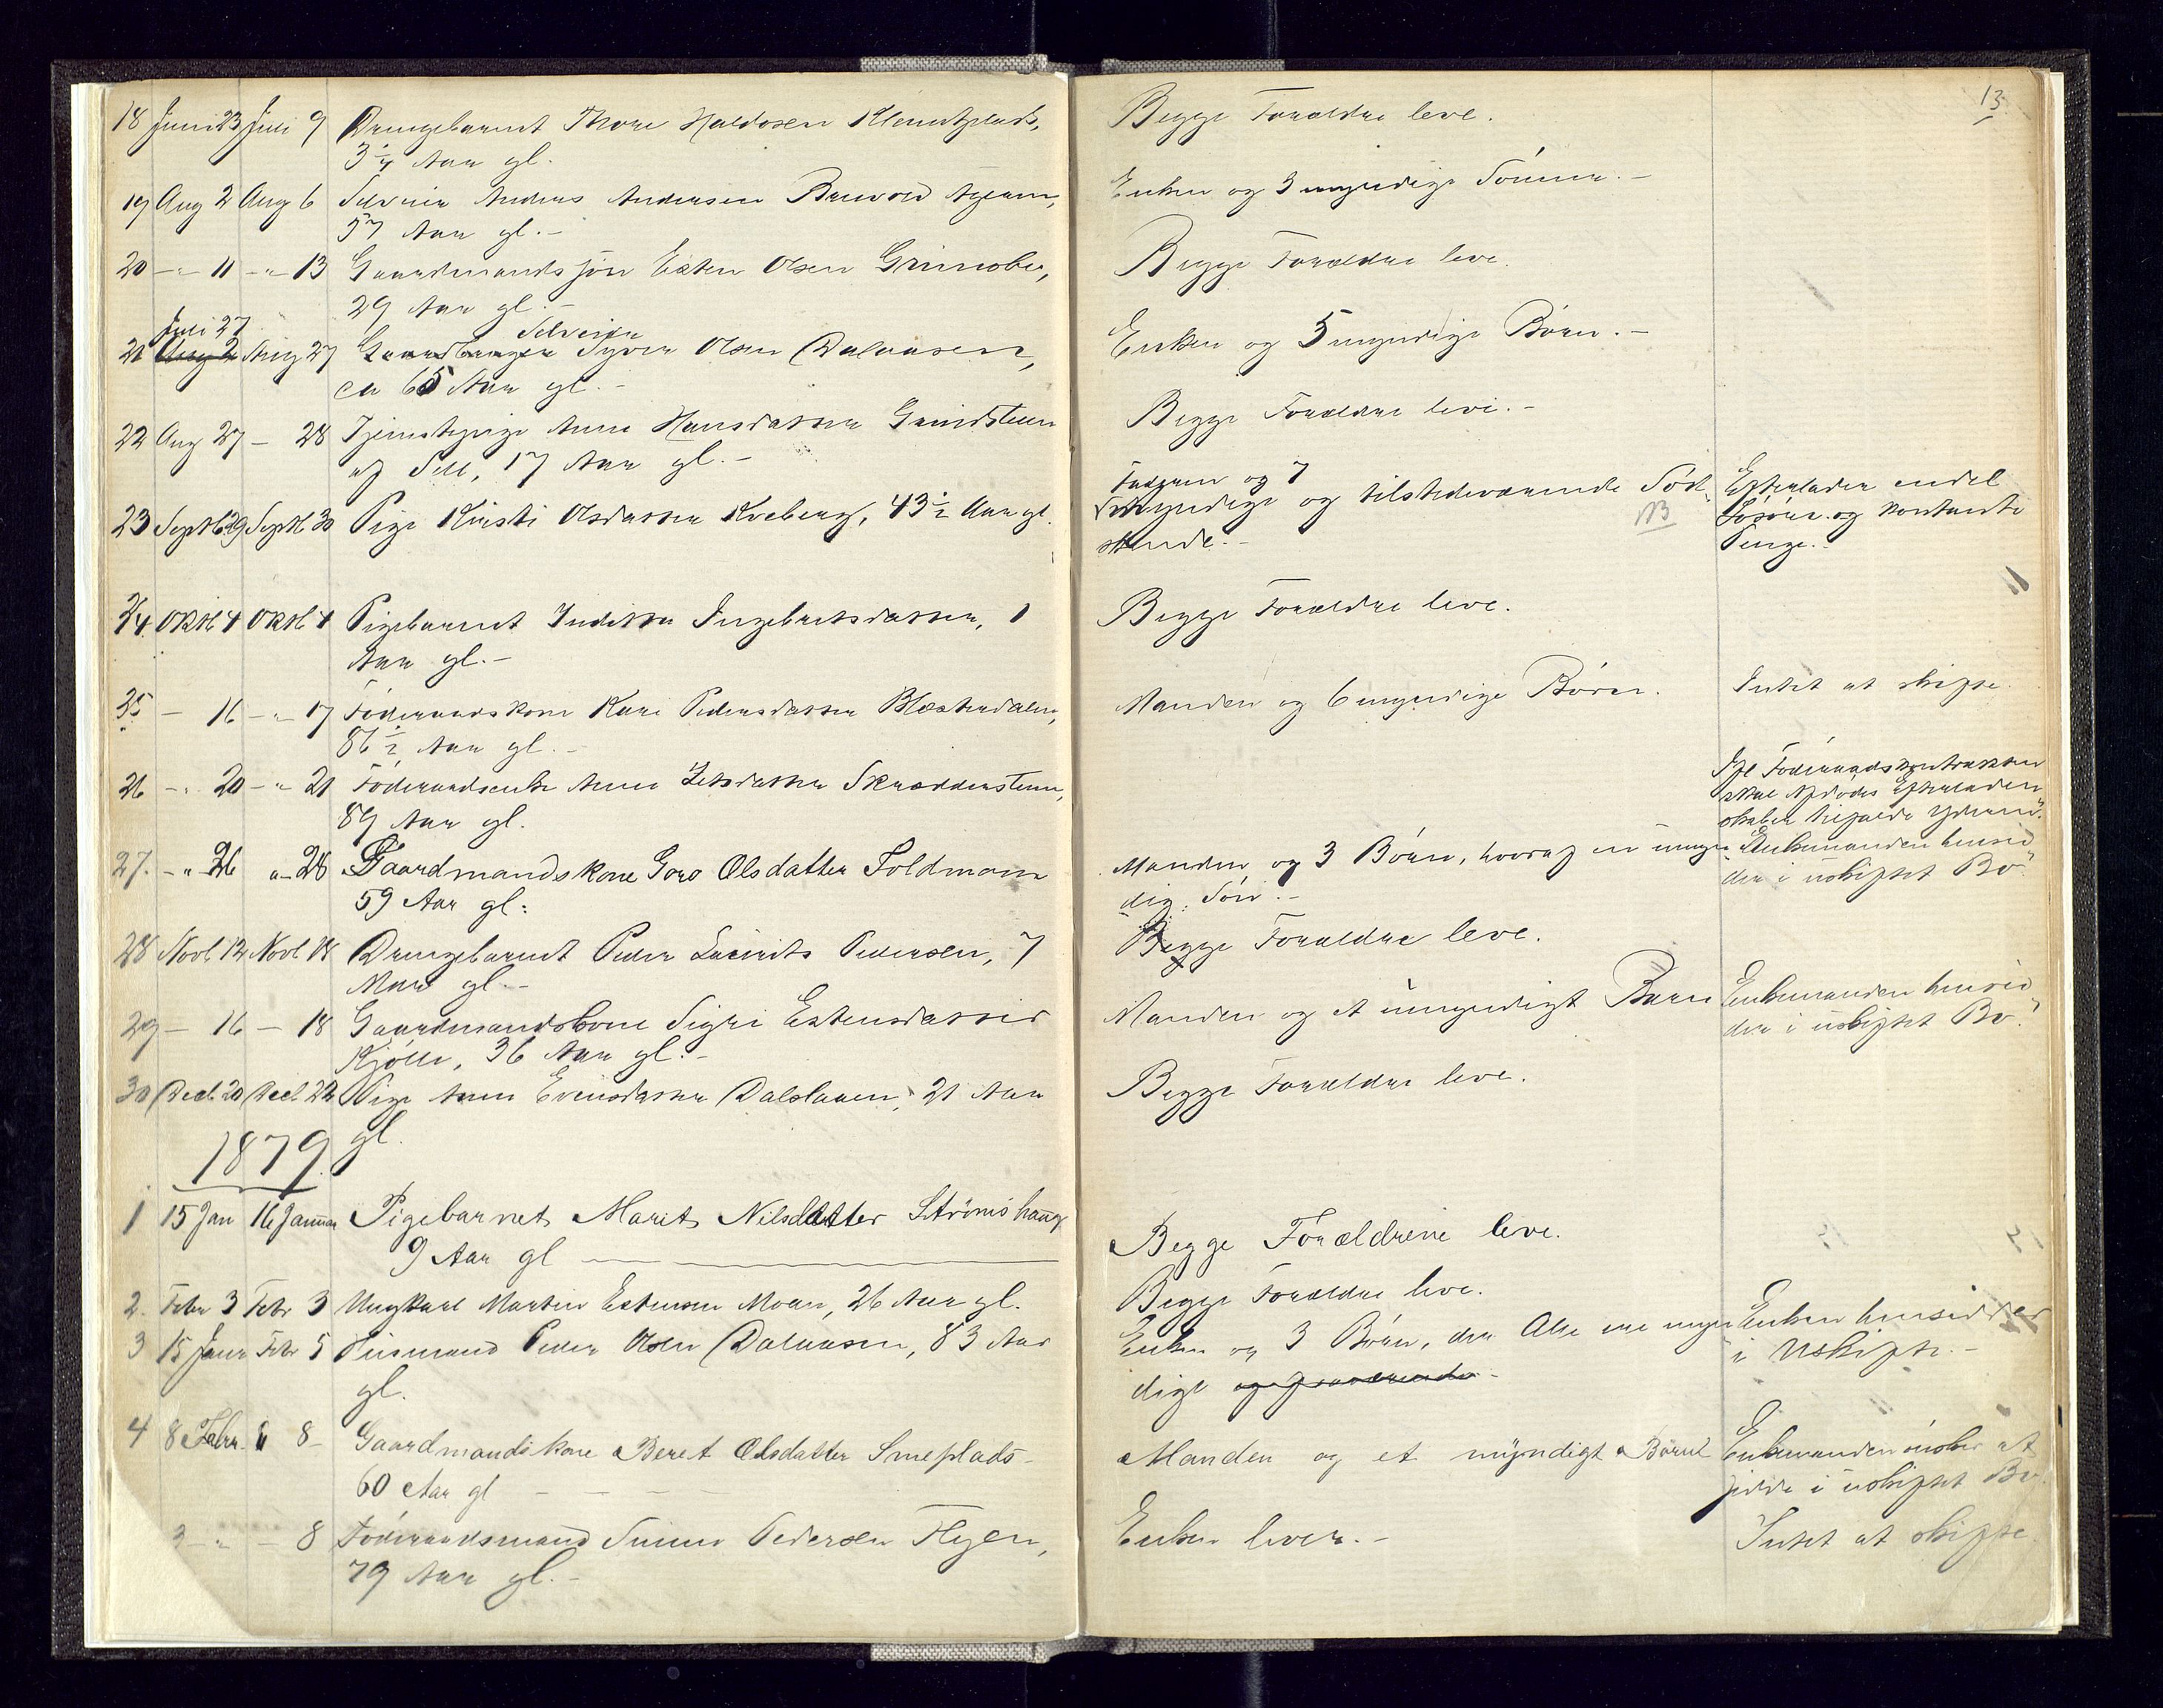 13
18 Juni 23 Juli 9 Drengebarnet Thore Haldosen Klemetplads,
3 1/4 Aar gl.
Begge Forældre leve.
19 Aug 2 Aug 6 Selveier Anders Andersen
57 Aar gl. -
Enken og 3 myndige Sønner. -
20 -"- 11 -"- 13 Gaardmandssøn Esten Olsen
29 Aar gl. -
Begge Forældre leve.
Juli 27 Selveier
21 Aug 2 Aug 27 Gaardbruger Syver Olsen Dalaasen,
ca 65 Aar gl. -
Enken og 5 myndige Børn. -
22 Aug 27 - 28 Tjenestepige Anne Hansdatter Grindstuen
af Sell, 17 Aar gl. -
Begge Forældre leve. -
23 Septb 29 Septb 30 Pige Kirsti Olsdatter Kveberg, 43 1/2 Aar gl.
Faderen og 7
myndige og tilstedeværende Sød-
skende. -
NB
Efterlader endel
Løsøre og kontante
Penge. -
24 Oktb 4 Oktb 4 Pigebarnet Ingebretsdatter, 1
Aar gl. -
Begge Forældre leve.
25 - 16 -"- 17 Føderaadskone Kari Pedersdatter
86 1/2 Aar gl. -
Manden og 6 myndige Børn.
Intet at skifte.
26 -"- 20 -"- 21 Føderaadsenke Anne
89 Aar gl.
Ifl Føderaadskontrakten
skal Afdødes Efterladen
skaber tilfalde Yderen".
27. -"- 26 "- 28 Gaardmandskone Goro Olsdatter Foldmoen
59 Aar gl:
Manden og 3 Børn, hvoraf en umyn
dig Søn. -
Enkemanden hensid
der i uskiftet Bo".
28 Novb 12 Novb 18 Drengebarnet Peder Laurits Pedersen, 7
Aar gl. -
Begge Forældre leve.
29 - 16 - 18 Gaardmandskone Sigri Estensdatter
Kjølle, 36 Aar gl. -
Manden og et umyndigt Barn
Enkemanden hensid
der i uskiftet Bo".
30 Decb 20 Decb 22 Pige Anne Evensdatter Dalslaaen, 21 Aar
gl.
Begge Forældre leve.
1879.
1 15 Jan 16 Januar Pigebarnet Marit Nilsdatter Strömshaug
9 Aar gl
Begge Forældrene leve.
2. Febr 3 Febr 3 Ungkarl Martin Estensen Moan, 26 Aar gl.
Begge Forældre leve.
3 15 Janr Febr 5 Husmand Peder Olsen Dalaasen, 83 Aar
gl.
Enken og 3 Børn, der Alle ere myn
dige
Enken hensidder
i Uskifte. -
4 8 Febr. " 8 - Gaardmandskone Beret Olsdatter Smeplads -
60 Aar gl - - -
Manden og et myndigt Barn
Enkemanden ønsker at
sidde i uskiftet Bo.
3 -"- - 8 Føderaadsmand Simen Pedersen Flyen,
79 Aar gl. -
Enken lever. -
Intet at skifte